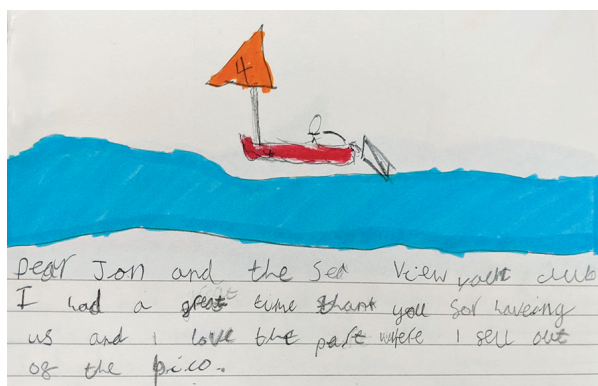 4
Dear Jon and the Sea View yacht club
I had a great time thank you for haveing
us and i love the part where I fell out
of the pico.